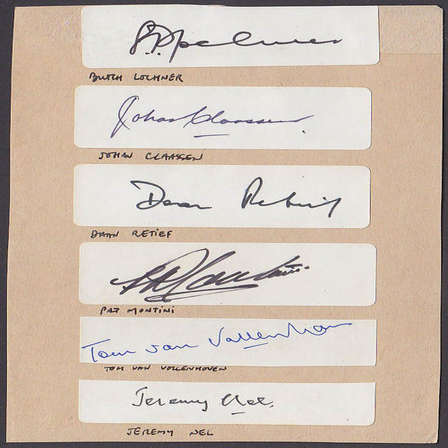 BUTCH LOCHNER
Johan Claassen
JOHAN CLAASSEN
Daan Retief
DAAN RETIEF
PAT MONTINI
Tom van Vollenhoven
TOM VAN VOLLENHOVEN
Jeremy Nel.
JEREMY NEL